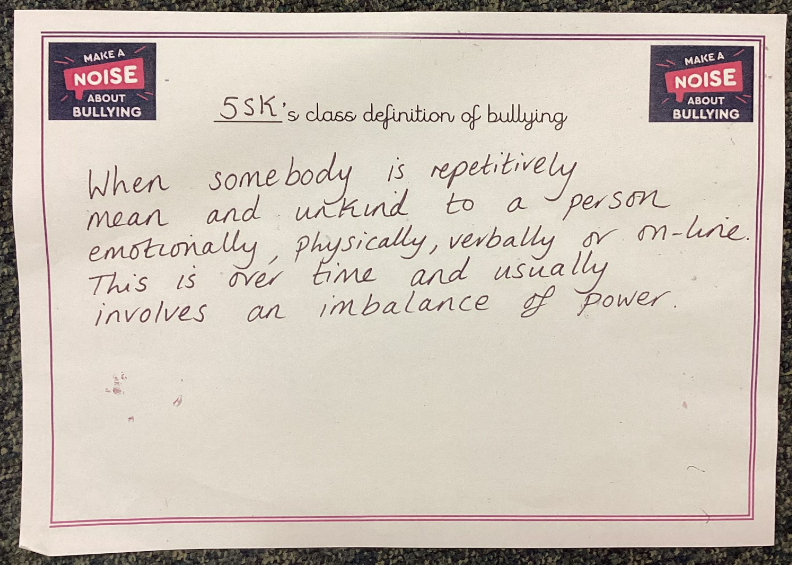 MAKE A
NOISE
ABOUT
BULLYING
MAKE A
NOISE
ABOUT
BULLYING
5SK's class definition of bullying
When somebody is repetitively
mean and unkind to a person
emotionally, physically, verbally or on-line.
This is over time and usually
involves an imbalance of power.